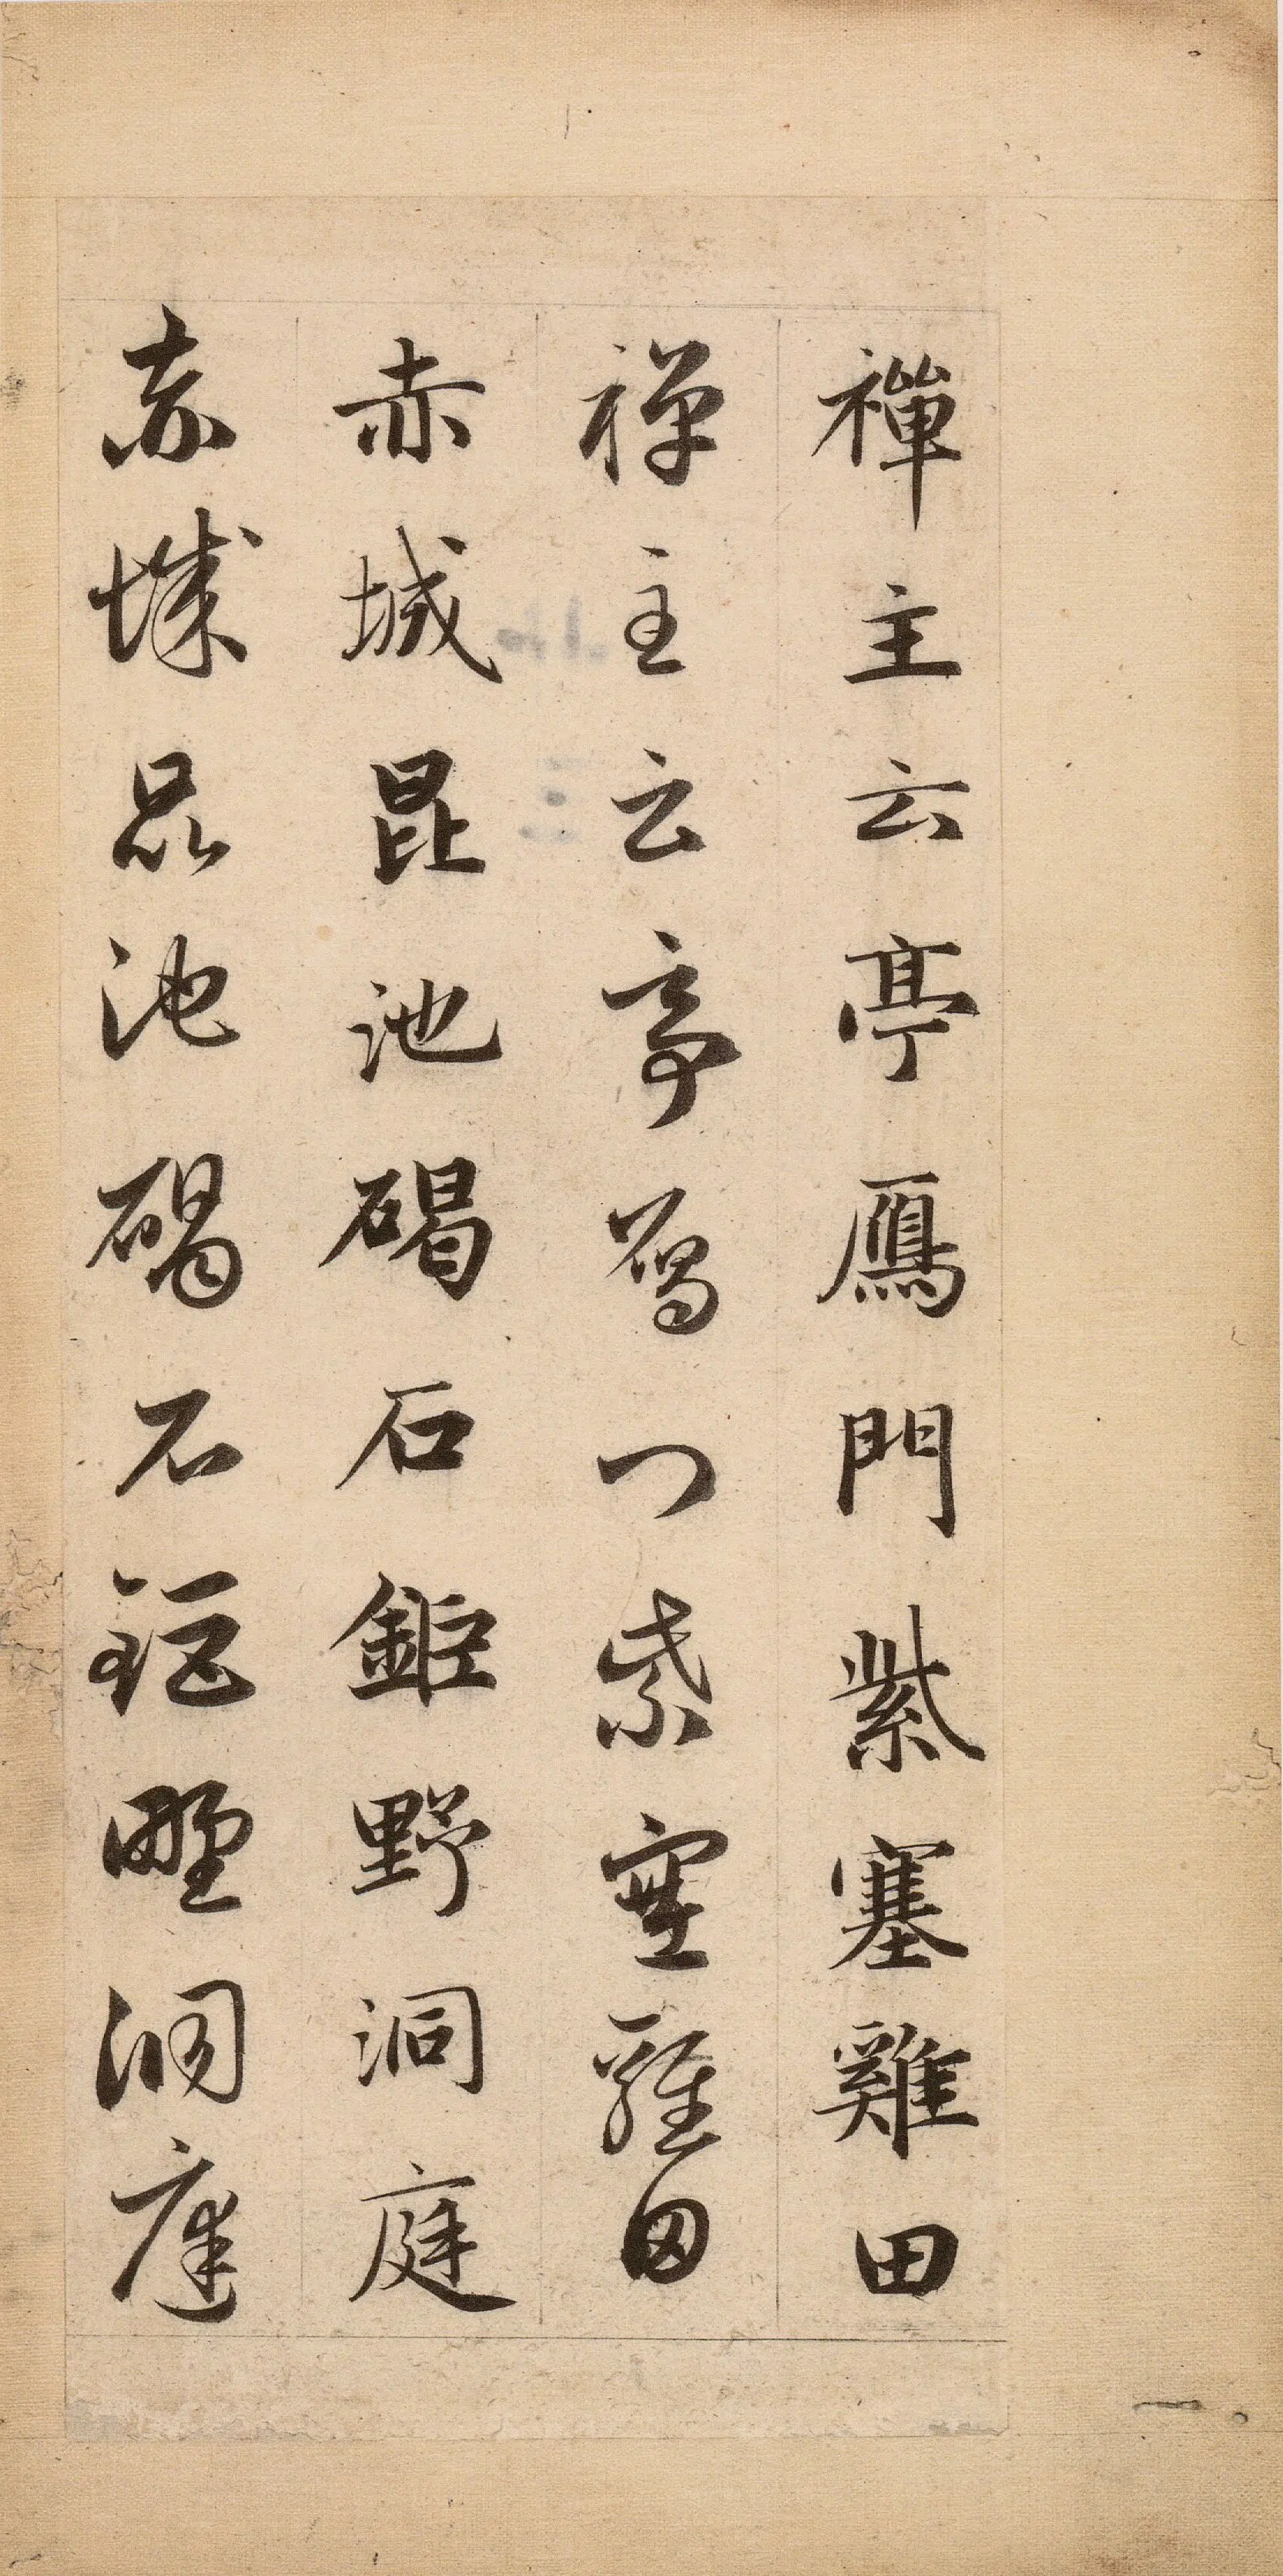 禪主云亭鴈門紫塞雞田
禪主云亭鴈門紫塞雞田
赤城昆池碣石鉅野洞庭
赤城昆池碣石鉅野洞庭